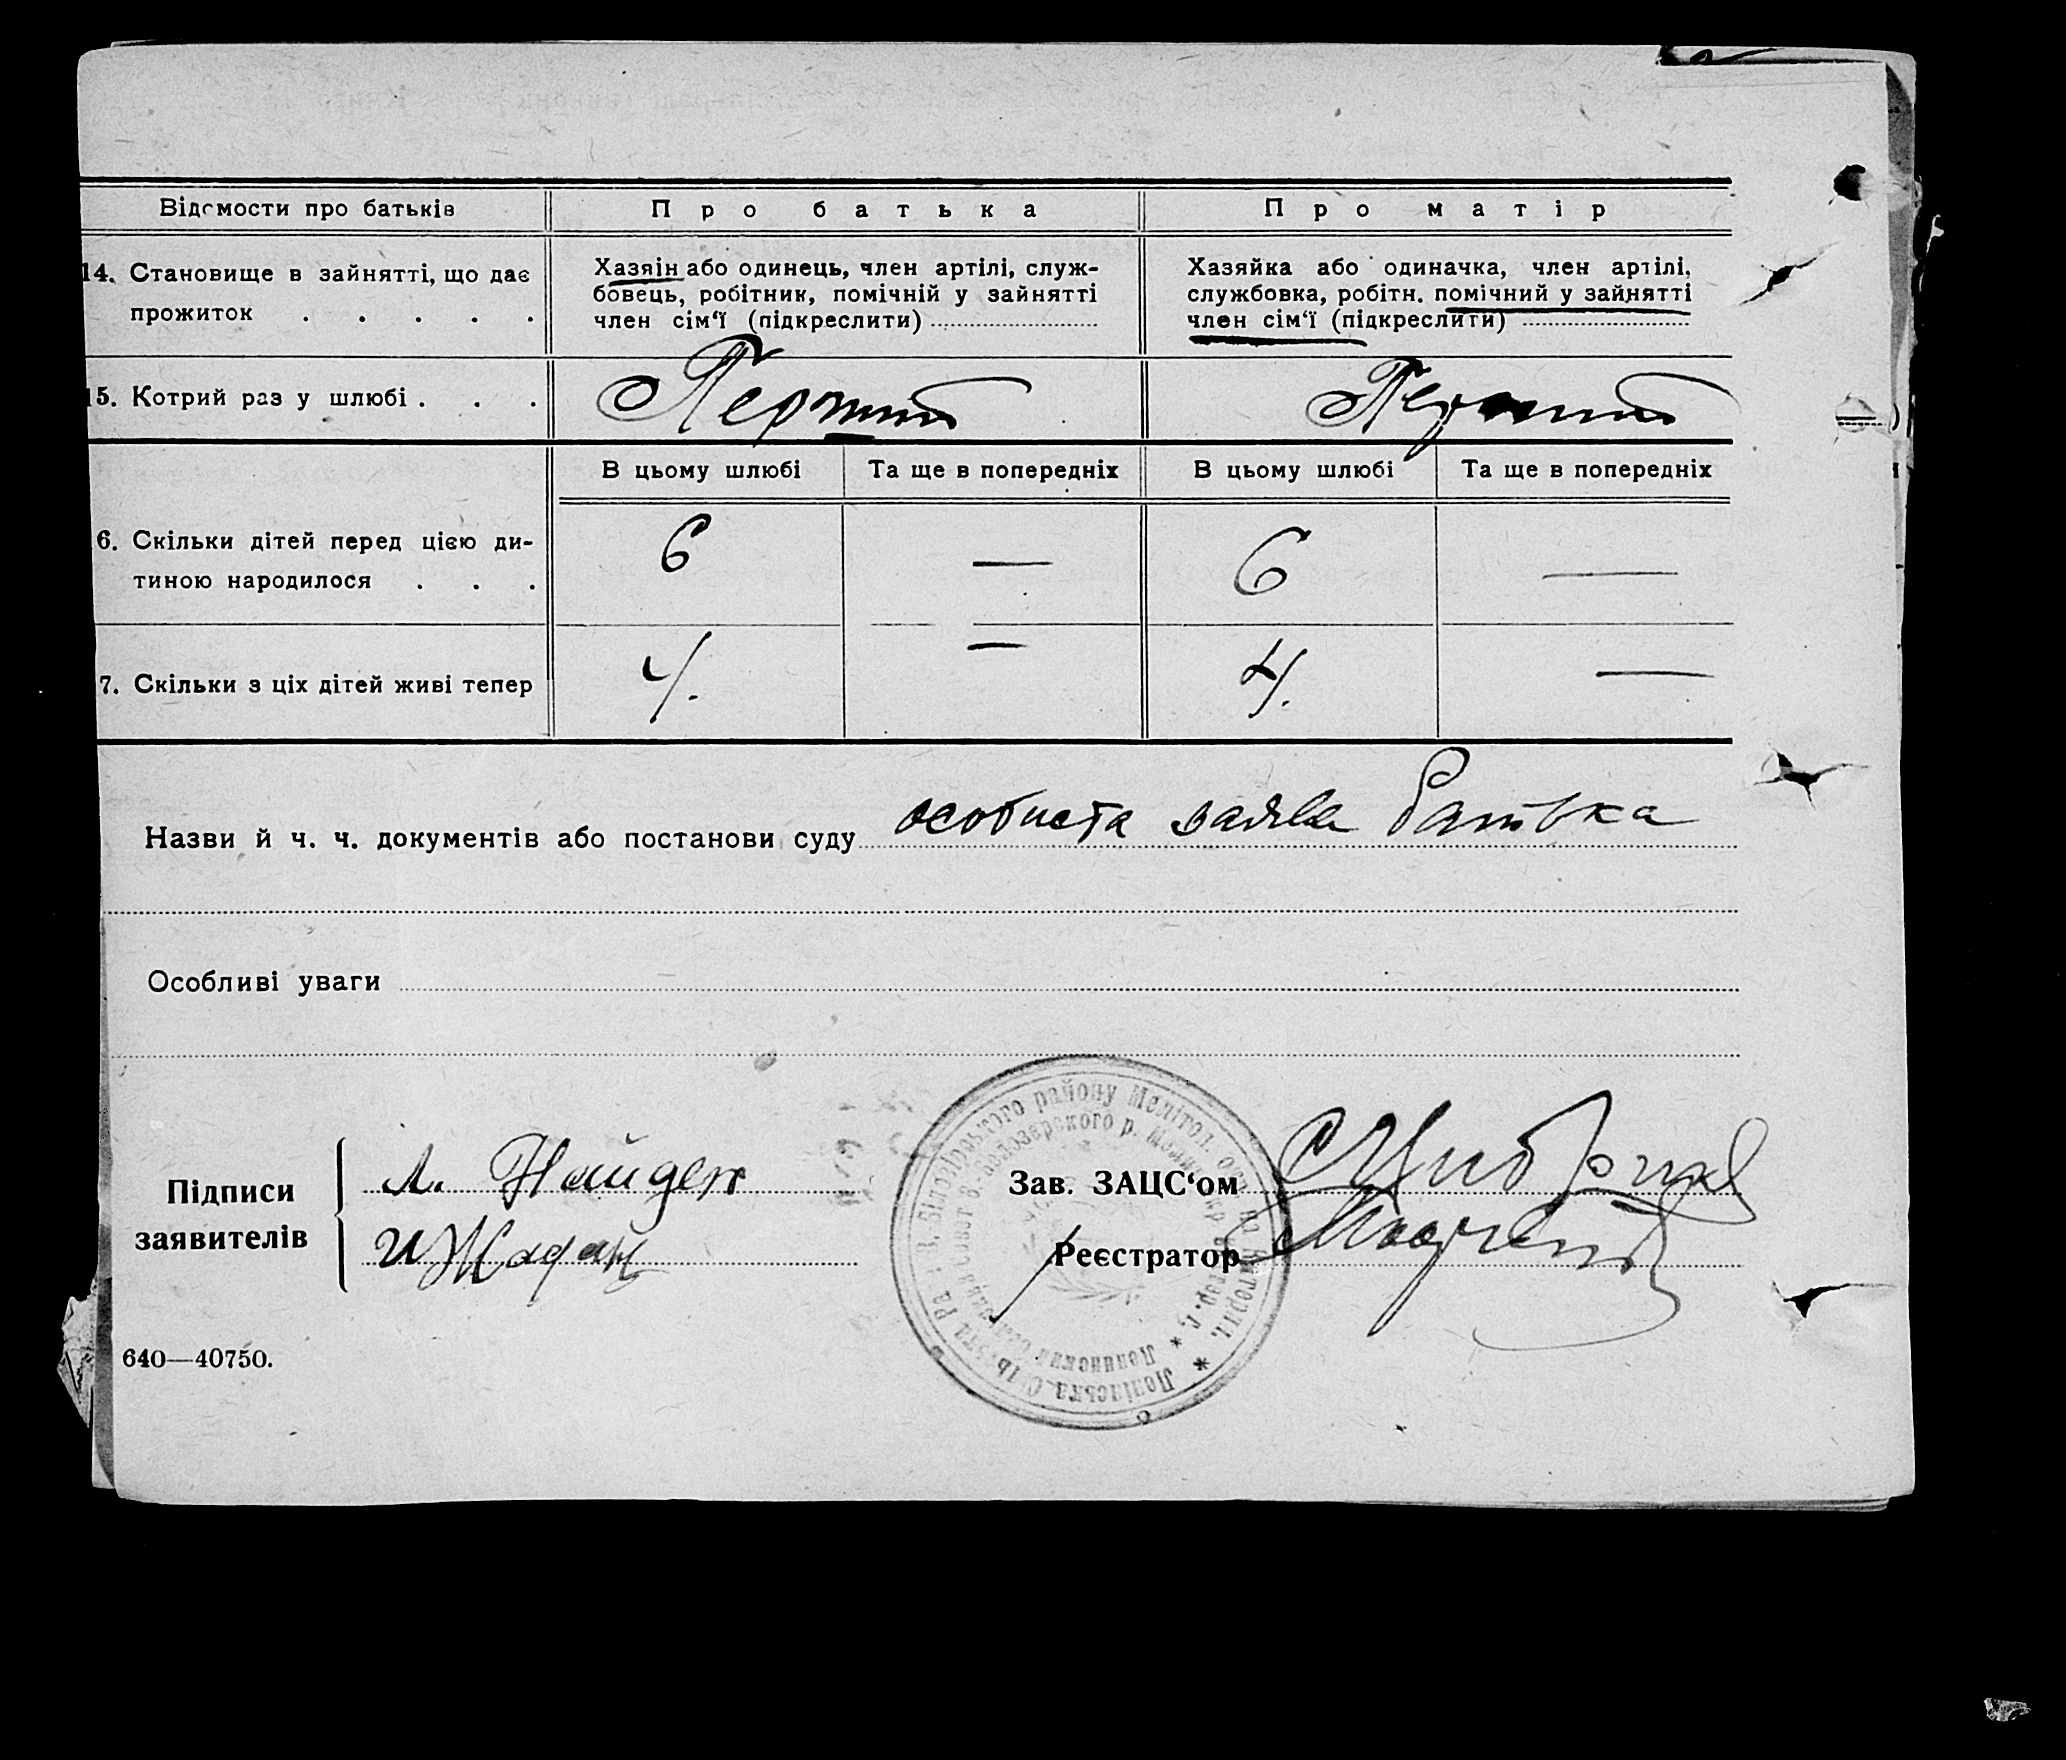 Відомости про батьків
Про батька
Про матір
14. Становище в зайнятті, що дає
прожиток . . . . .
Хазяін або одинець, член артілі, служ-
бовець, робітник, помічній у зайнятті
член сім‘ї (підкреслити)
Хазяйка або одиначка, член артілі,
службовка, робітн. помічний у зайнятті
член сім‘ї (підкреслити)
15. Котрий раз у шлюбі . . .
Перший
Перший
В цьому шлюбі
Та ще в попередніх
В цьому шлюбі
Та ще в попередніх
6. Скільки дітей перед цією ди-
тиною народилося . . .
6 — 6 —
7. Скільки з ціх дітей живі тепер
4. — 4. —
Назви й ч. ч. документів або постанови суду особиста заява батька
Особливі уваги
Підписи
заявителів
Л. Найден
И Жадан
Зав. ЗАЦС‘ом
Реєстратор
району Меліто<!-- -->п.
640—40750.